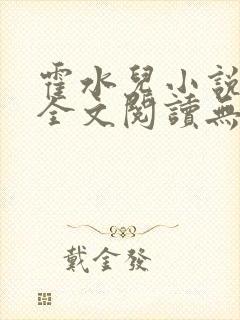 霍水兒小說
全文閱讀無
戴金發